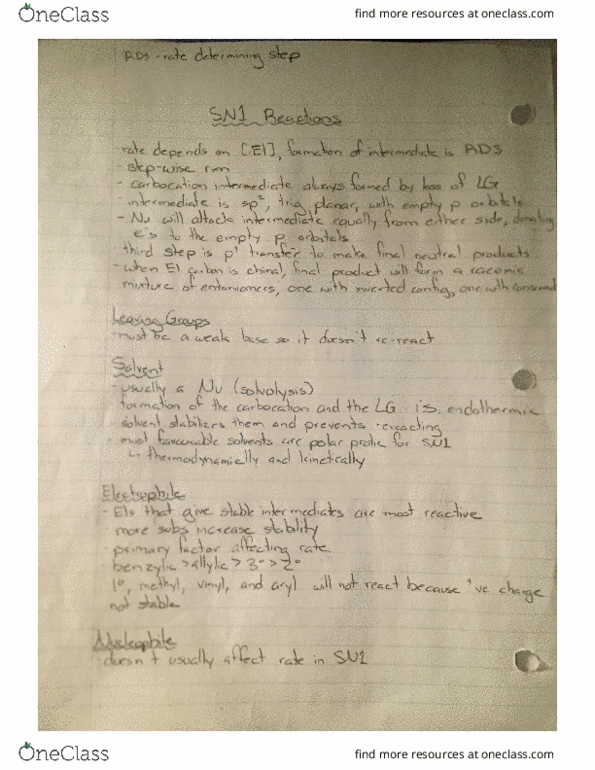 OneClass
find more resources at oneclass.com
RDS - rate determining step
SN1 Reactions
- rate depends on [El], formation of intermediate is RDS
- step-wise rxn
- carbocation intermediate always formed by loss of LG
- intermediate is sp², trig planar, with empty p orbitals
- Nu will attack intermediate equally from either side, donating
e⁻s to the empty p orbitals
- third step is p⁺ transfer to make final neutral products
- when El carbon is chiral, final product will form a racemic
mixture of entaniomers, one with inverted config, one with conserved
Leaving Groups
- must be a weak base so it doesn't re-react
Solvent
- usually a Nu (solvolysis)
- formation of the carbocation and the LG is endothermic
solvent stabilizes them and prevents reacting
- most favourable solvents are polar protic for SN1
↳ thermodynamically and kinetically
Electrophile
- Els that give stable intermediates are most reactive
- more subs increase stability
- primary factor affecting rate
- benzylic > allylic > 3° > 2°
1°, methyl, vinyl, and aryl will not react because +ve charge
not stable
Nucleophile
- doesn't usually affect rate in SN1
OneClass
find more resources at oneclass.com